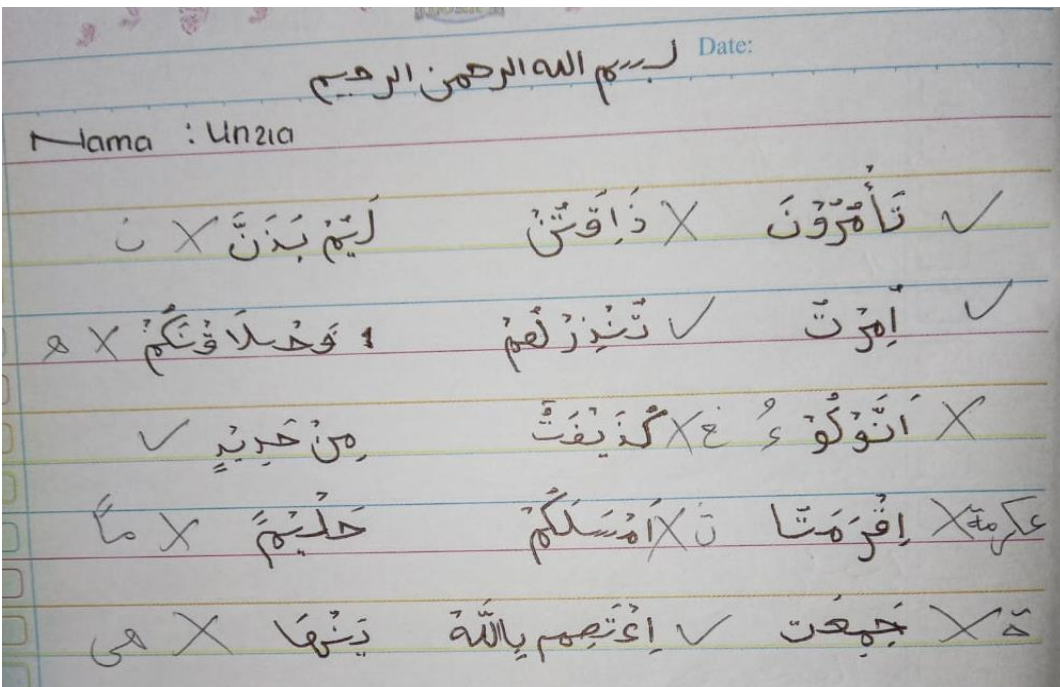 Date:
بسم الله الرحمن الرحيم
Nama : Unzia
✓ تَأْمُرُوْنَ X ذَاِقَوْتُنْ لَيَنْ بَدَنَّ X ن
✓ اُمِرْتُ ✓ تُنْذِرْ لَهُمْ وَحْلَاوُنَكُمْ X ه
X اَنَّوْكُوْ ءُ X خ كُذَيْفَتُ مِنْ حَدِيْدٍ ✓
عكرمة X اِقْرَمَتَا X ن اَمْسَلَكُمْ حَلْيْمً X مًا
ةً X جَمِعَت ✓ اِعْتَصِم بِاللَّهْ يَنْهَا X هى